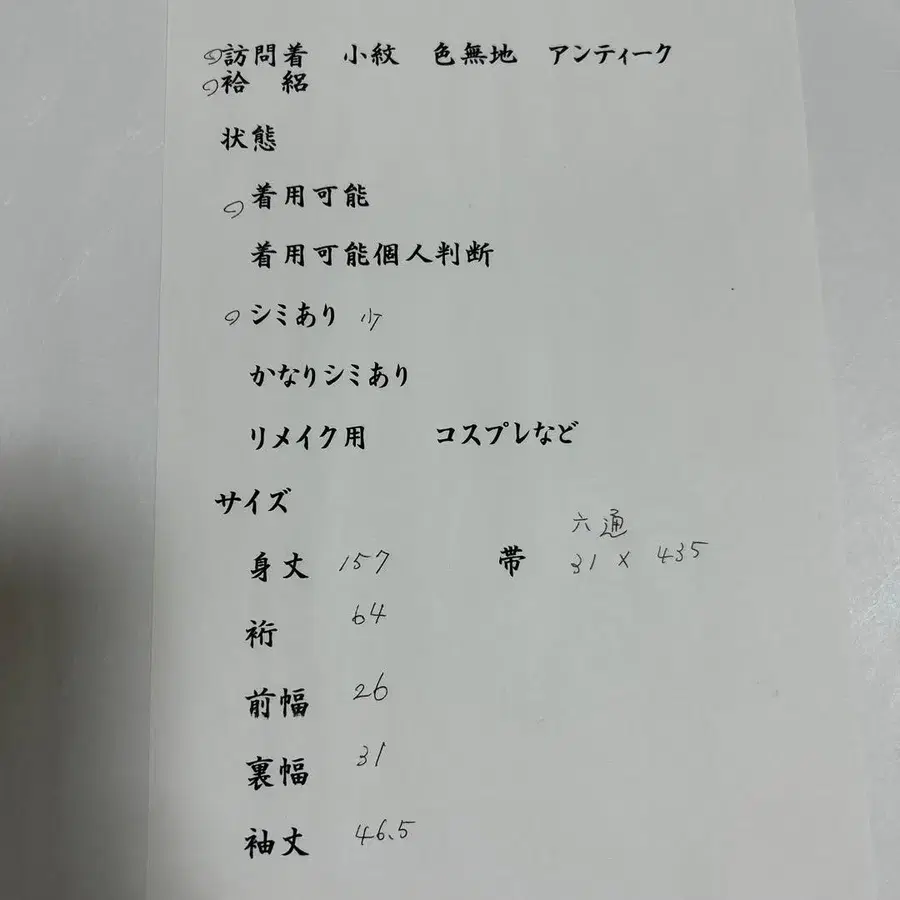 訪問着 小紋 色無地 アンティーク
袷 絽
状態
着用可能
着用可能個人判断
シミあり 少
かなりシミあり
リメイク用 コスプレなど
サイズ
六通
身丈 157 帯 31 × 435
裄 64
前幅 26
裏幅 31
袖丈 46.5